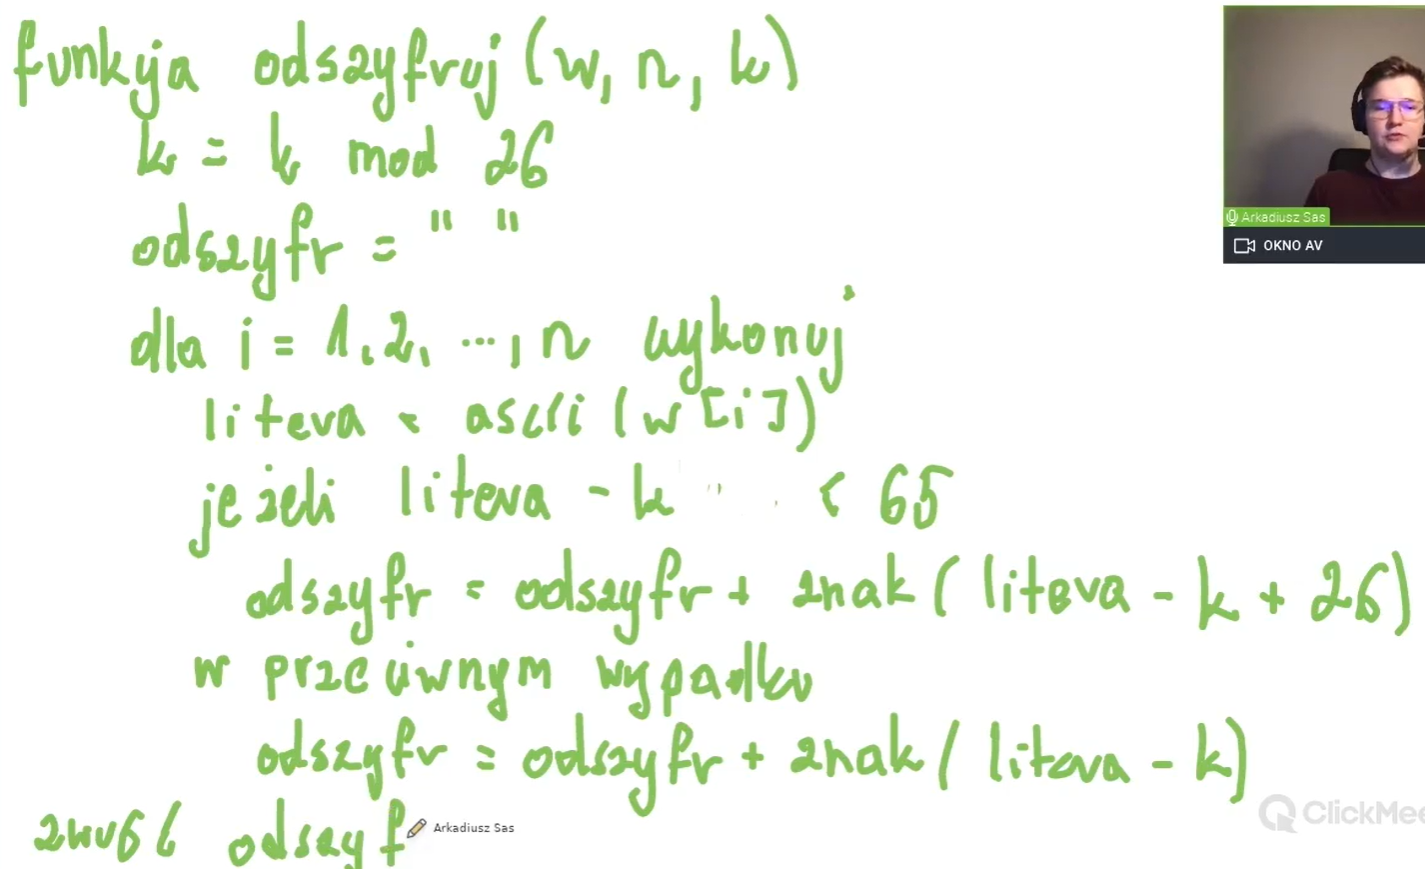 funkcja odszyfruj (w, n, k)
k = k mod 26
odszyfr = " "
dla i = 1, 2, ..., n wykonuj
litera = ascii (w[i])
jeżeli litera - k < 65
odszyfr = odszyfr + znak (litera - k + 26)
w przeciwnym wypadku
odszyfr = odszyfr + znak (litera - k)
zwróć odszyf
Arkadiusz Sas
Arkadiusz Sas
OKNO AV
ClickMee